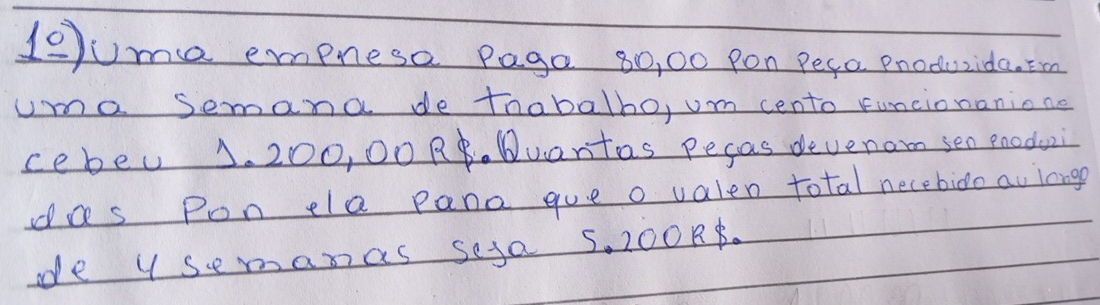 1º) uma empresa paga 80,00 por peça produzida. Em
uma semana de trabalho, um certo funcionario re
cebeu 1.200,00R$. Quantas peças deveram ser produzi
das por ela para que o valer total recebido au longo
de 4 semanas seja 5.200R$.